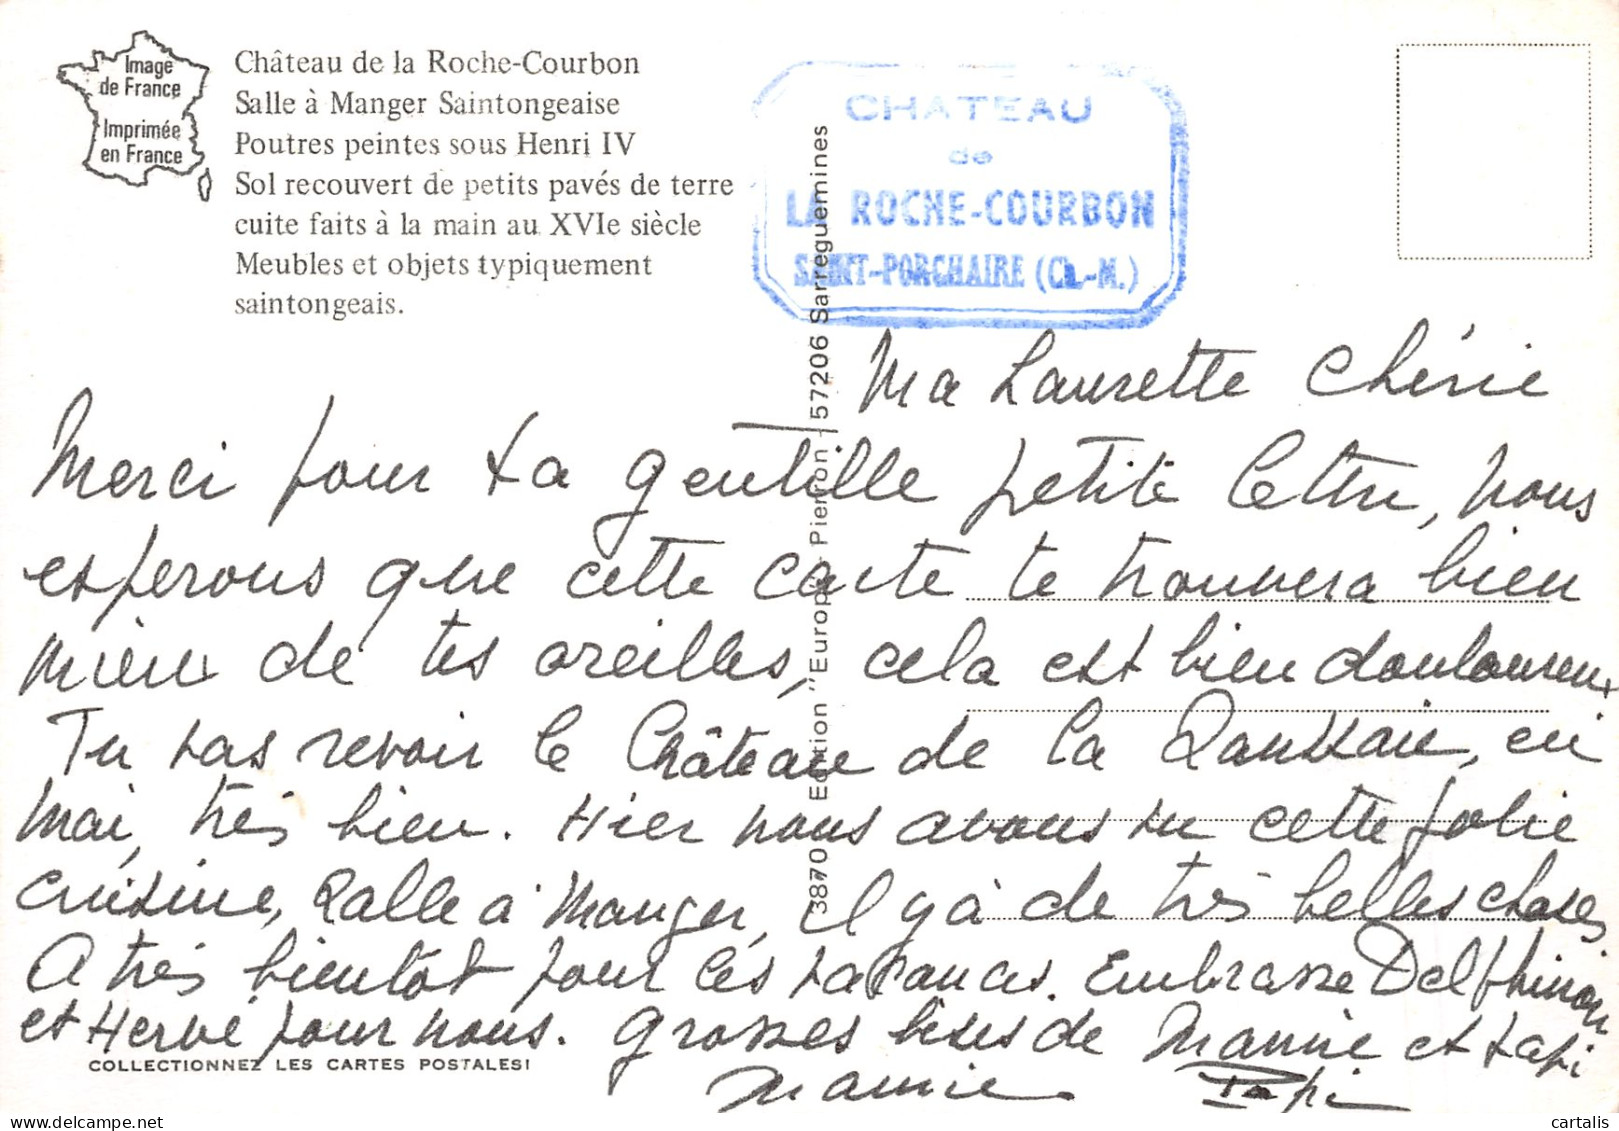 Image
de France
Imprimée
en France
Château de la Roche-Courbon
Salle à Manger Saintongeaise
Poutres peintes sous Henri IV
Sol recouvert de petits pavés de terre
cuite faits à la main au XVIe siècle
Meubles et objets typiquement
saintongeais.
CHATEAU
de
LA ROCHE-COURBON
SAINT-PORCHAIRE (Ch.-M.)
3870 Edition "Europ" Pierron - 57206 Sarreguemines
Ma Laurette Chérie
Merci pour ta gentille petite lettre, nous
esperons que cette carte te trouvera bien
mieux de tes oreilles, cela est bien douloureux
Tu vas revoir le Château de la en
Mai, très bien. Hier nous avons vu cette jolie
cuisine, Salle à Manger, il y à de très belles choses
A très bientôt pour les vacances. Embrasse
et Hervé pour nous. Grosses bises de Mamie et papi
COLLECTIONNEZ LES CARTES POSTALES!
Mamie Papi
cartalis
www.delcampe.net